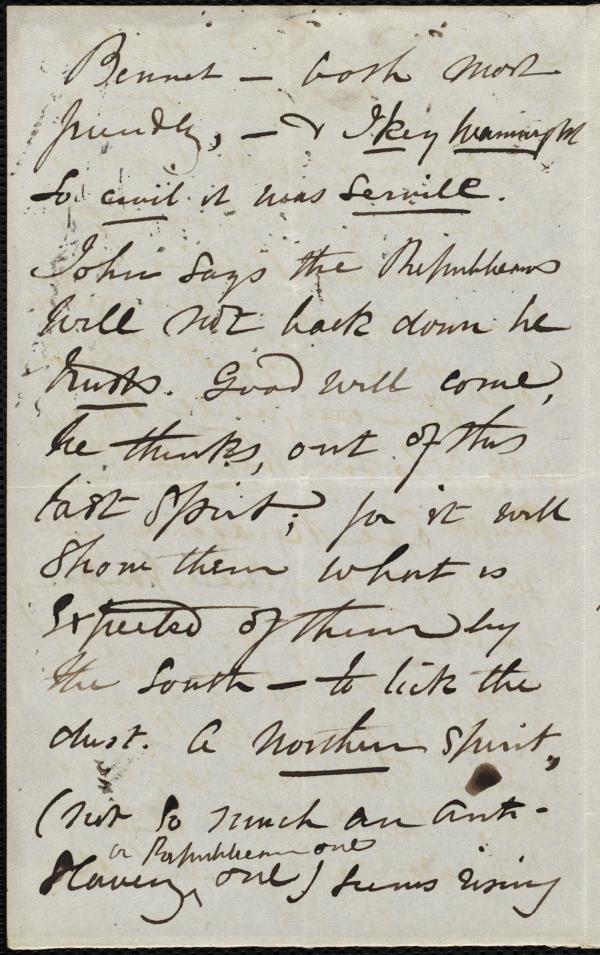 Bennet — both most
friendly, — & Ikey
so civil it was servile.
John says the Republicans
will not back down he
trusts. Good will come,
he thinks, out of this
last spirit; for it will
show them what is
expected of them by
the South — to lick the
dust. A Northern spirit,
(not so much an anti-
or Republican one
slavery, one) seems rising